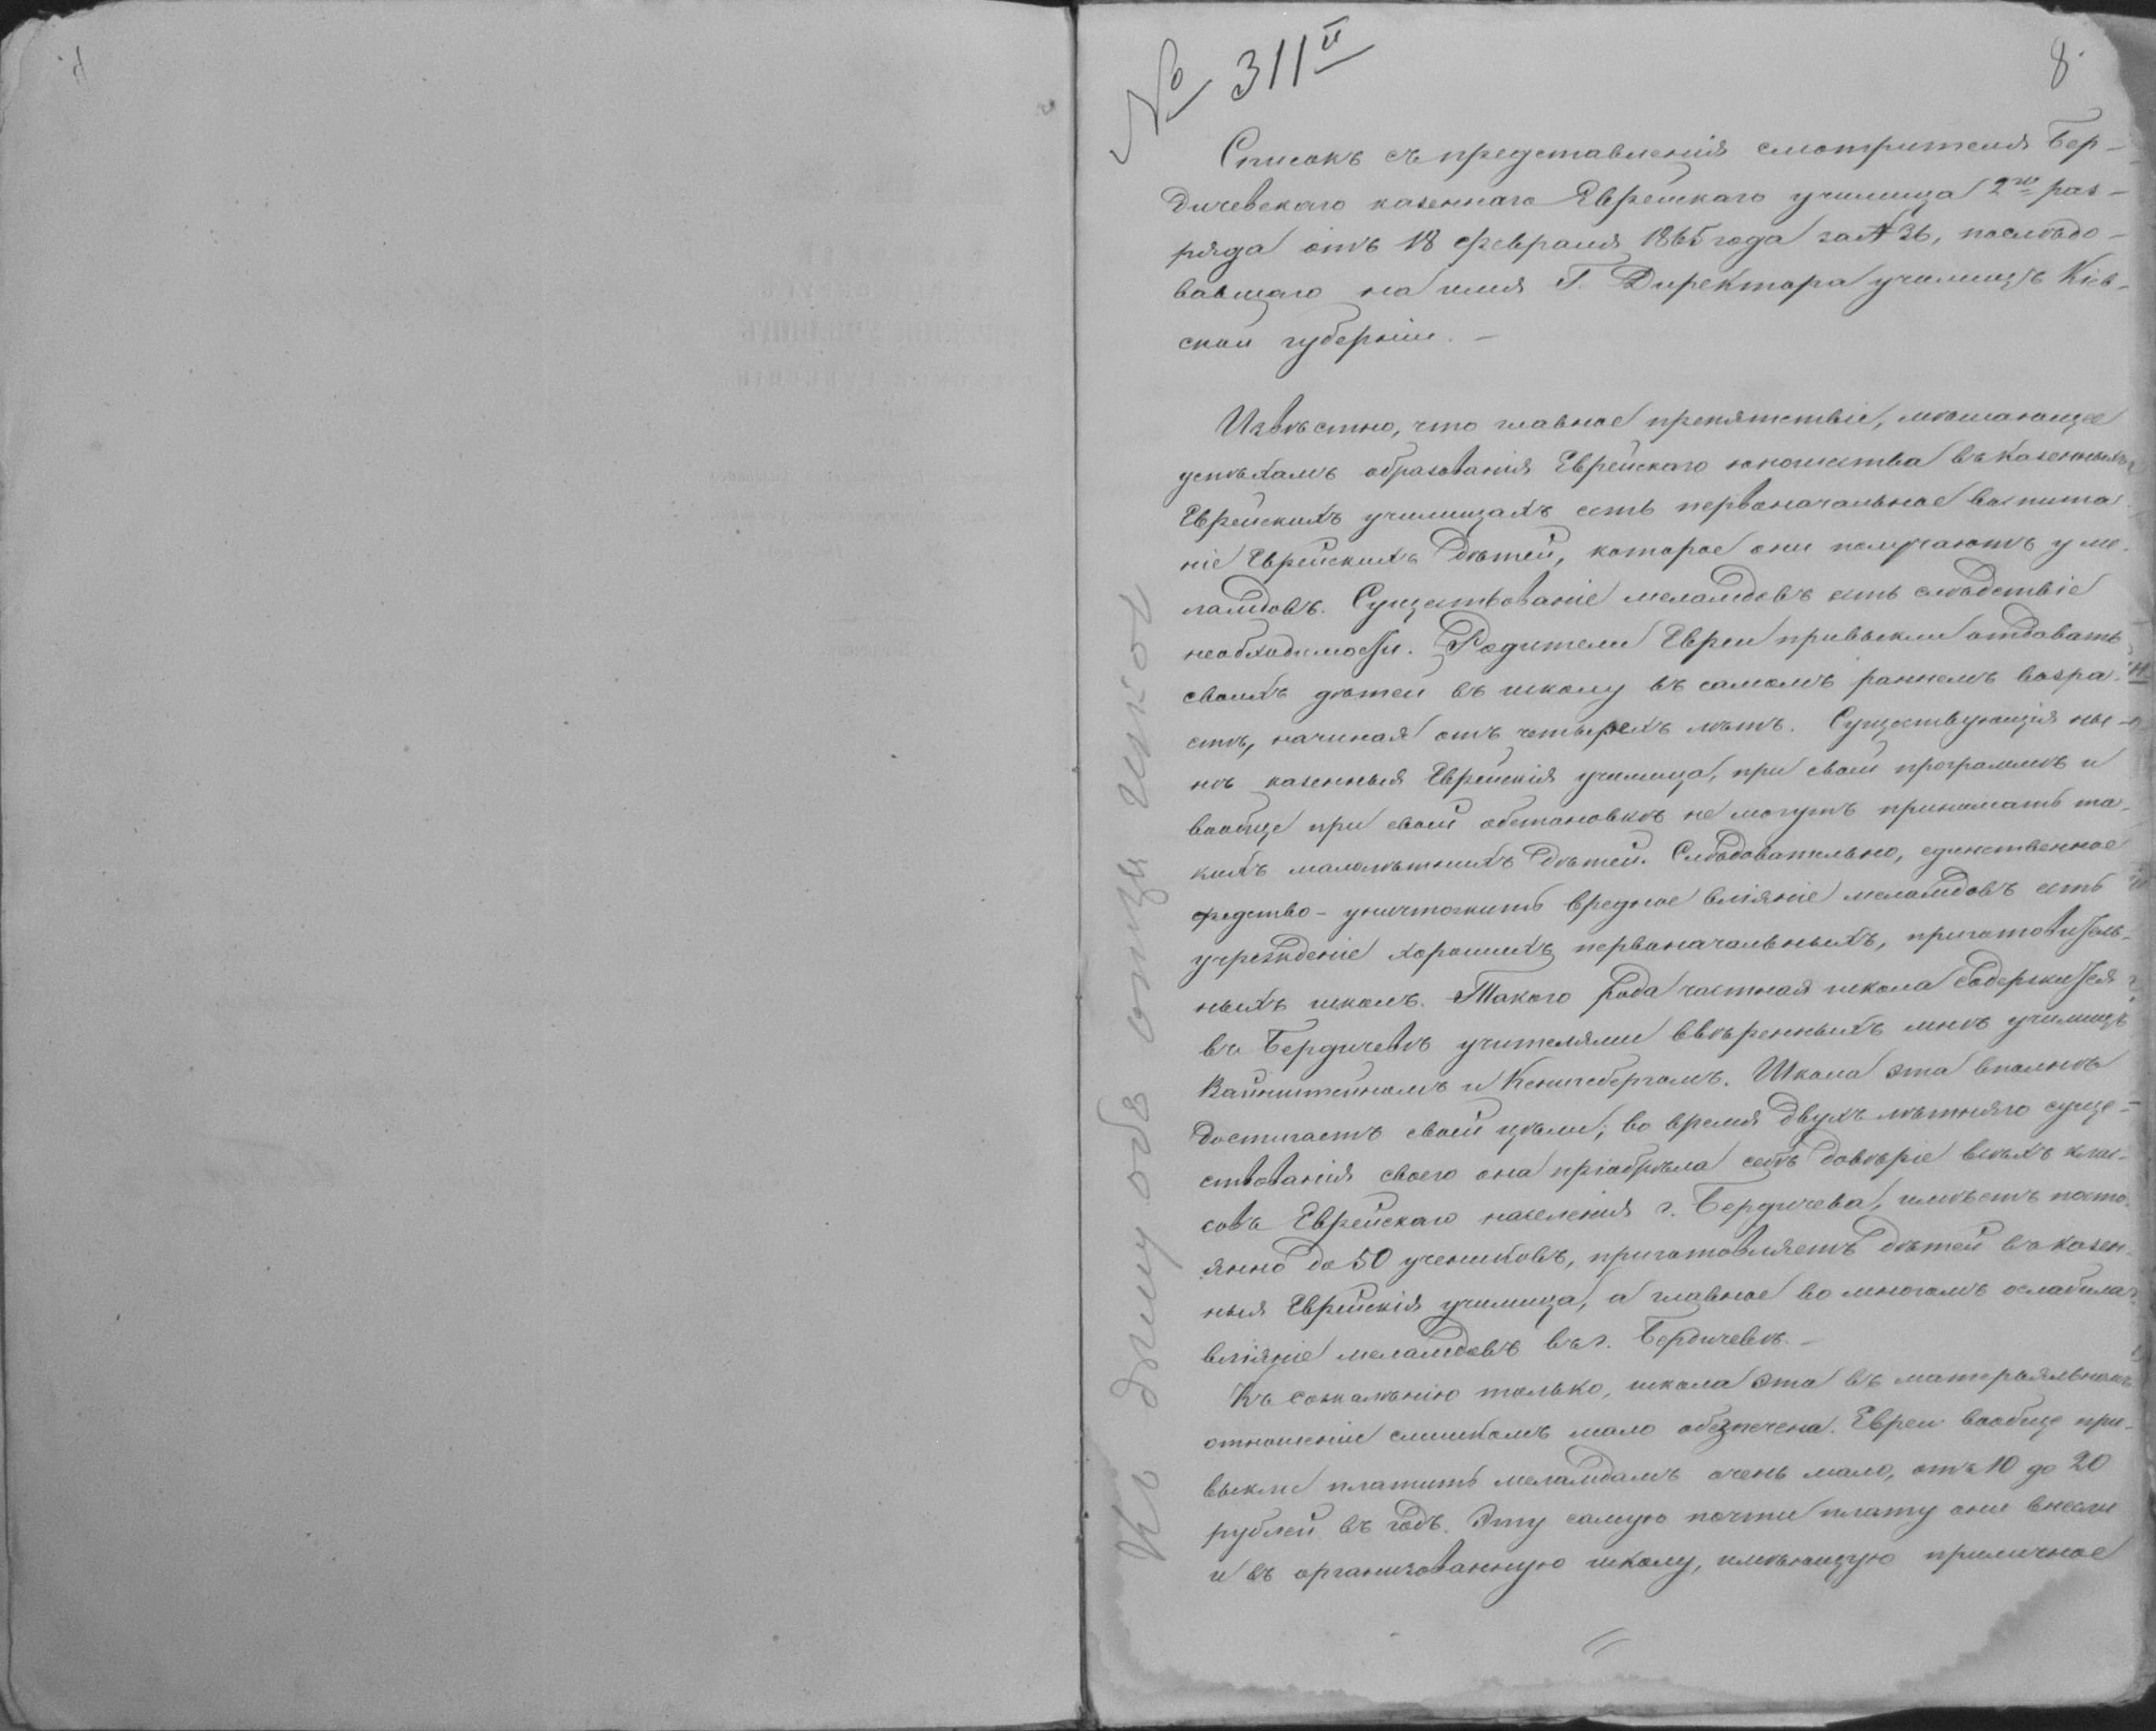 № 311й
8.
Списокъ съ представленія смотрителя Бер-
дичевскаго казеннаго Еврейскаго училища 2го раз-
ряда отъ 18 февраля 1865 года за № 36, послѣдо-
вавшаго на имя Г. Директора училищъ Кіев-
ской губерніи. –
Извѣстно, что главное препятствіе, мѣшающее
успѣхамъ образованія Еврейскаго юношества въ казенныхъ
Еврейскихъ училищахъ есть первоначальное воспита-
ніе Еврейскихъ дѣтей, которое они получаютъ у ме-
ламдовъ. Существованіе меламдовъ есть слѣдствіе
необходимости. Родители Евреи привыкли отдавать
своихъ дѣтей въ школу въ самомъ раннемъ возра-
стѣ, начиная отъ четырехъ лѣтъ. Существующія ны-
нѣ казенныя Еврейскія училища, при своей программѣ и
вообще при своей обстановкѣ не могутъ принимать та-
кихъ малолѣтнихъ дѣтей. Слѣдовательно, единственное
средство – уничтожить вредное вліяніе меламдовъ есть
учрежденіе хорошихъ первоначальныхъ, приготовитель-
ныхъ школъ. Такого рода частная школа содержится
въ Бердичевѣ учителями ввѣренныхъ мнѣ училищъ
Вайнштейномъ и Кенигсбергомъ. Школа эта вполнѣ
достигаетъ своей цѣли; во время двухъ лѣтняго суще-
ствованія своего она пріобрѣла себѣ довѣріе всѣхъ клас-
совъ Еврейскаго населенія г. Бердичева, имѣетъ посто-
янно до 50 учениковъ, приготовляетъ дѣтей въ казен-
ныя Еврейскія училища, а главное во многомъ ослабила
вліяніе меламдовъ въ г. Бердичевѣ. –
Къ сожалѣнію только, школа эта въ матеріяльномъ
отношеніи слишкомъ мало обезпечена. Евреи вообще при-
выкли платить меламдамъ очень мало, отъ 10 до 20
рублей въ годъ. Эту самую почти плату они внесли
и въ организованную школу, имѣющую приличное
Къ дѣлу объ откр. школ